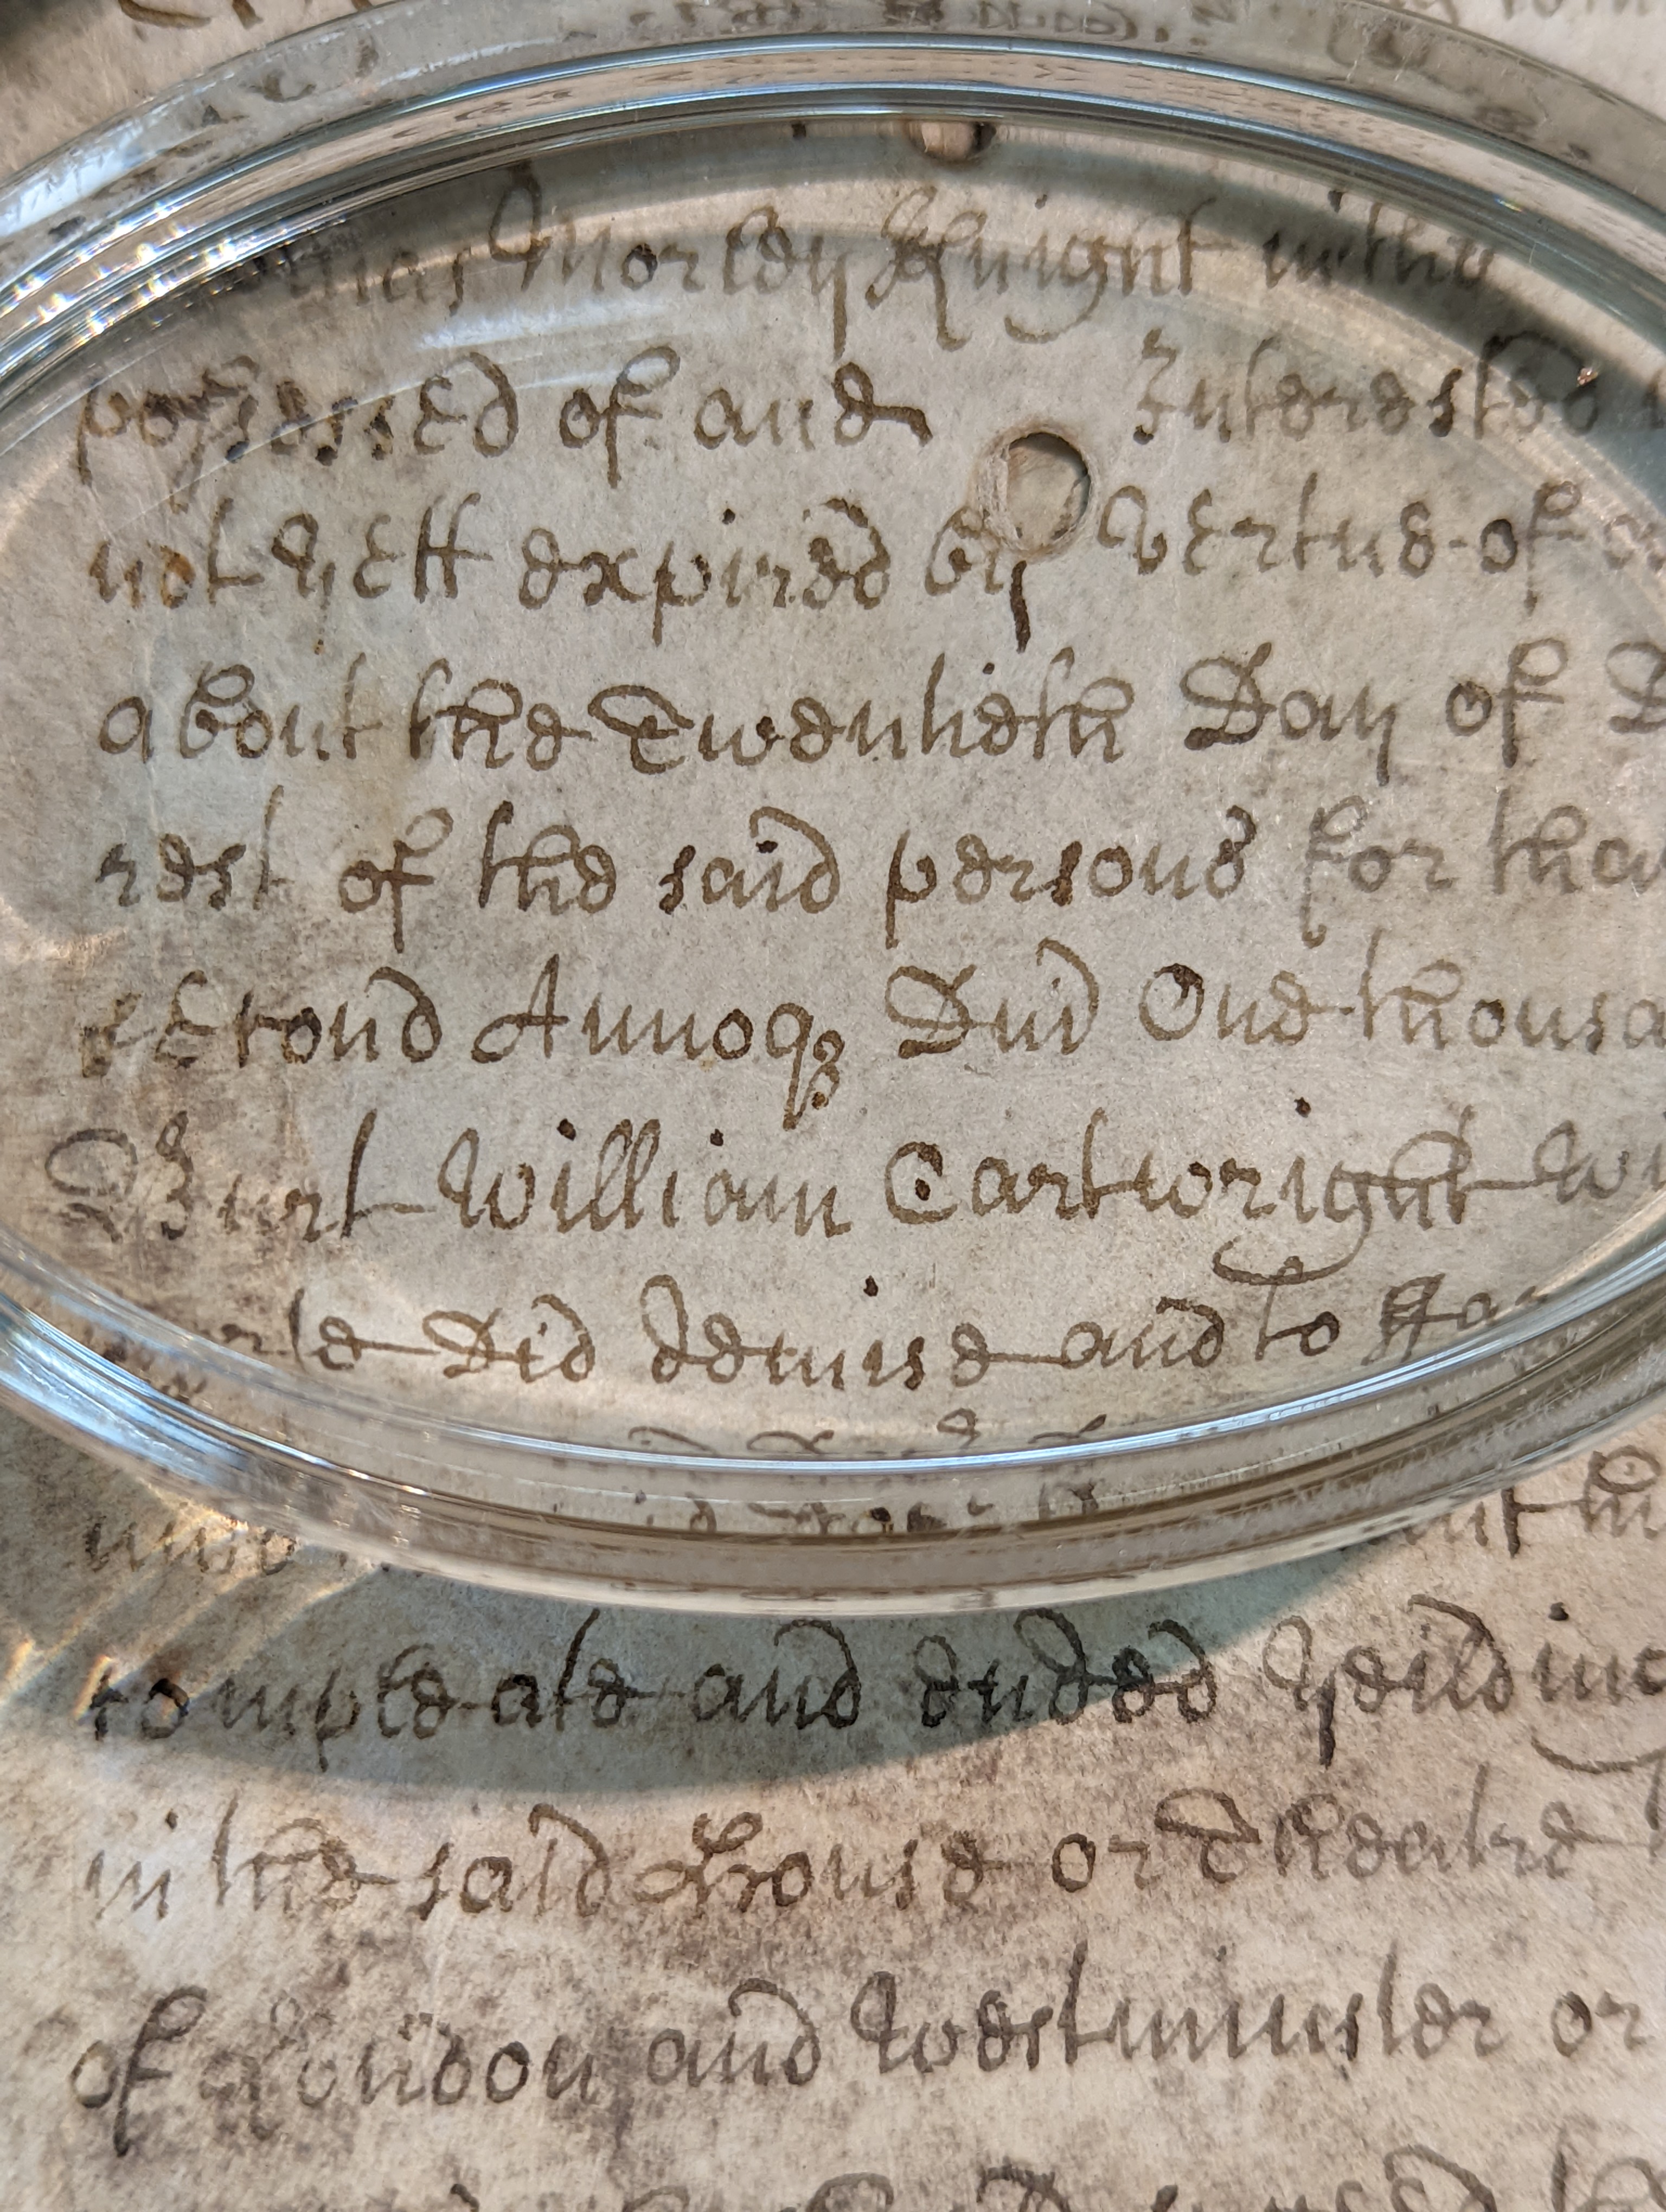 Morley Knight
possessed of and Interested
not yett expired by vertue of
about the Twentieth Day of
rest of the said persons for
second Annoq Dñi One thousa
Burt William Cartwright
Did demise and to ffar
compleate and ended yeilding
in the said House or Theatre
of London and Westminster or